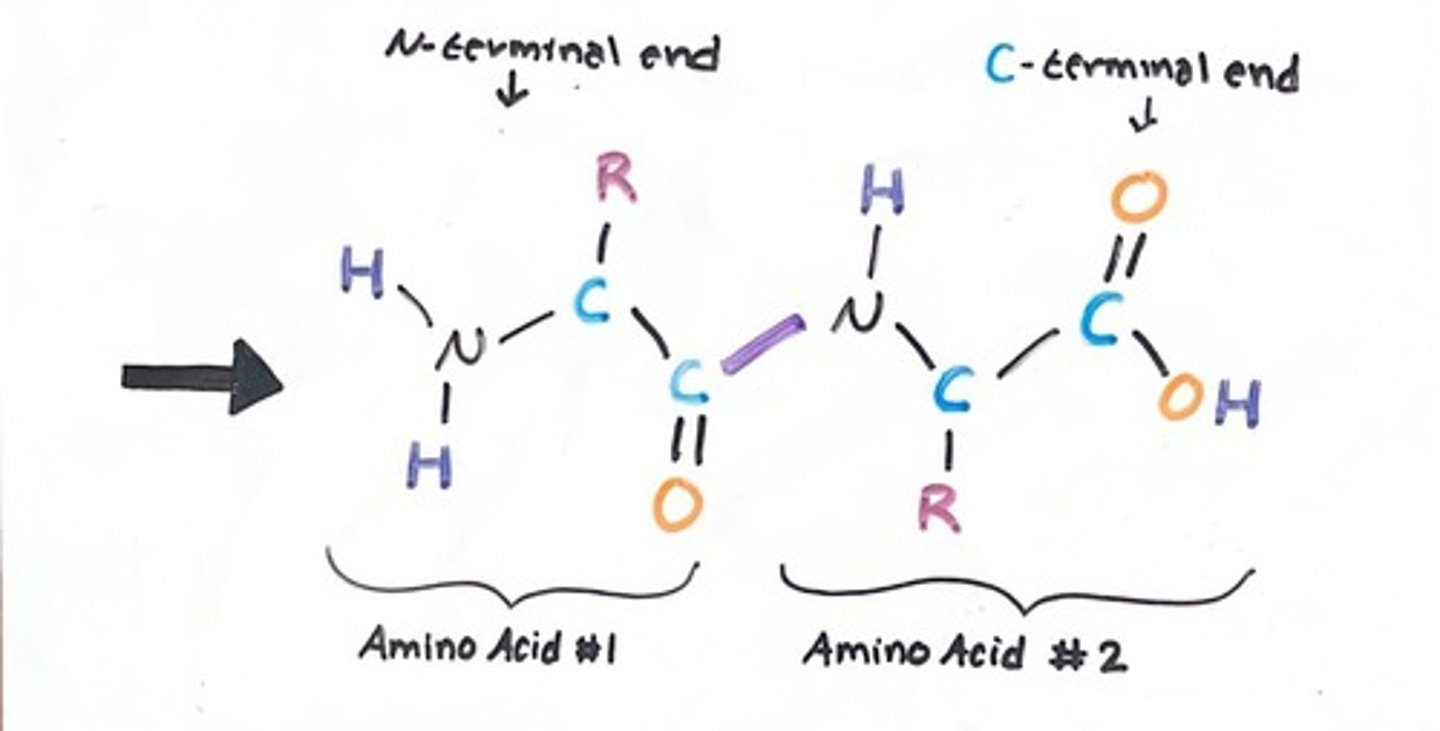 N-terminal end
C-terminal end
↓
↓
R
H
O
H
C
N
C
N
C
C
OH
H
O
R
Amino Acid #1
Amino Acid #2